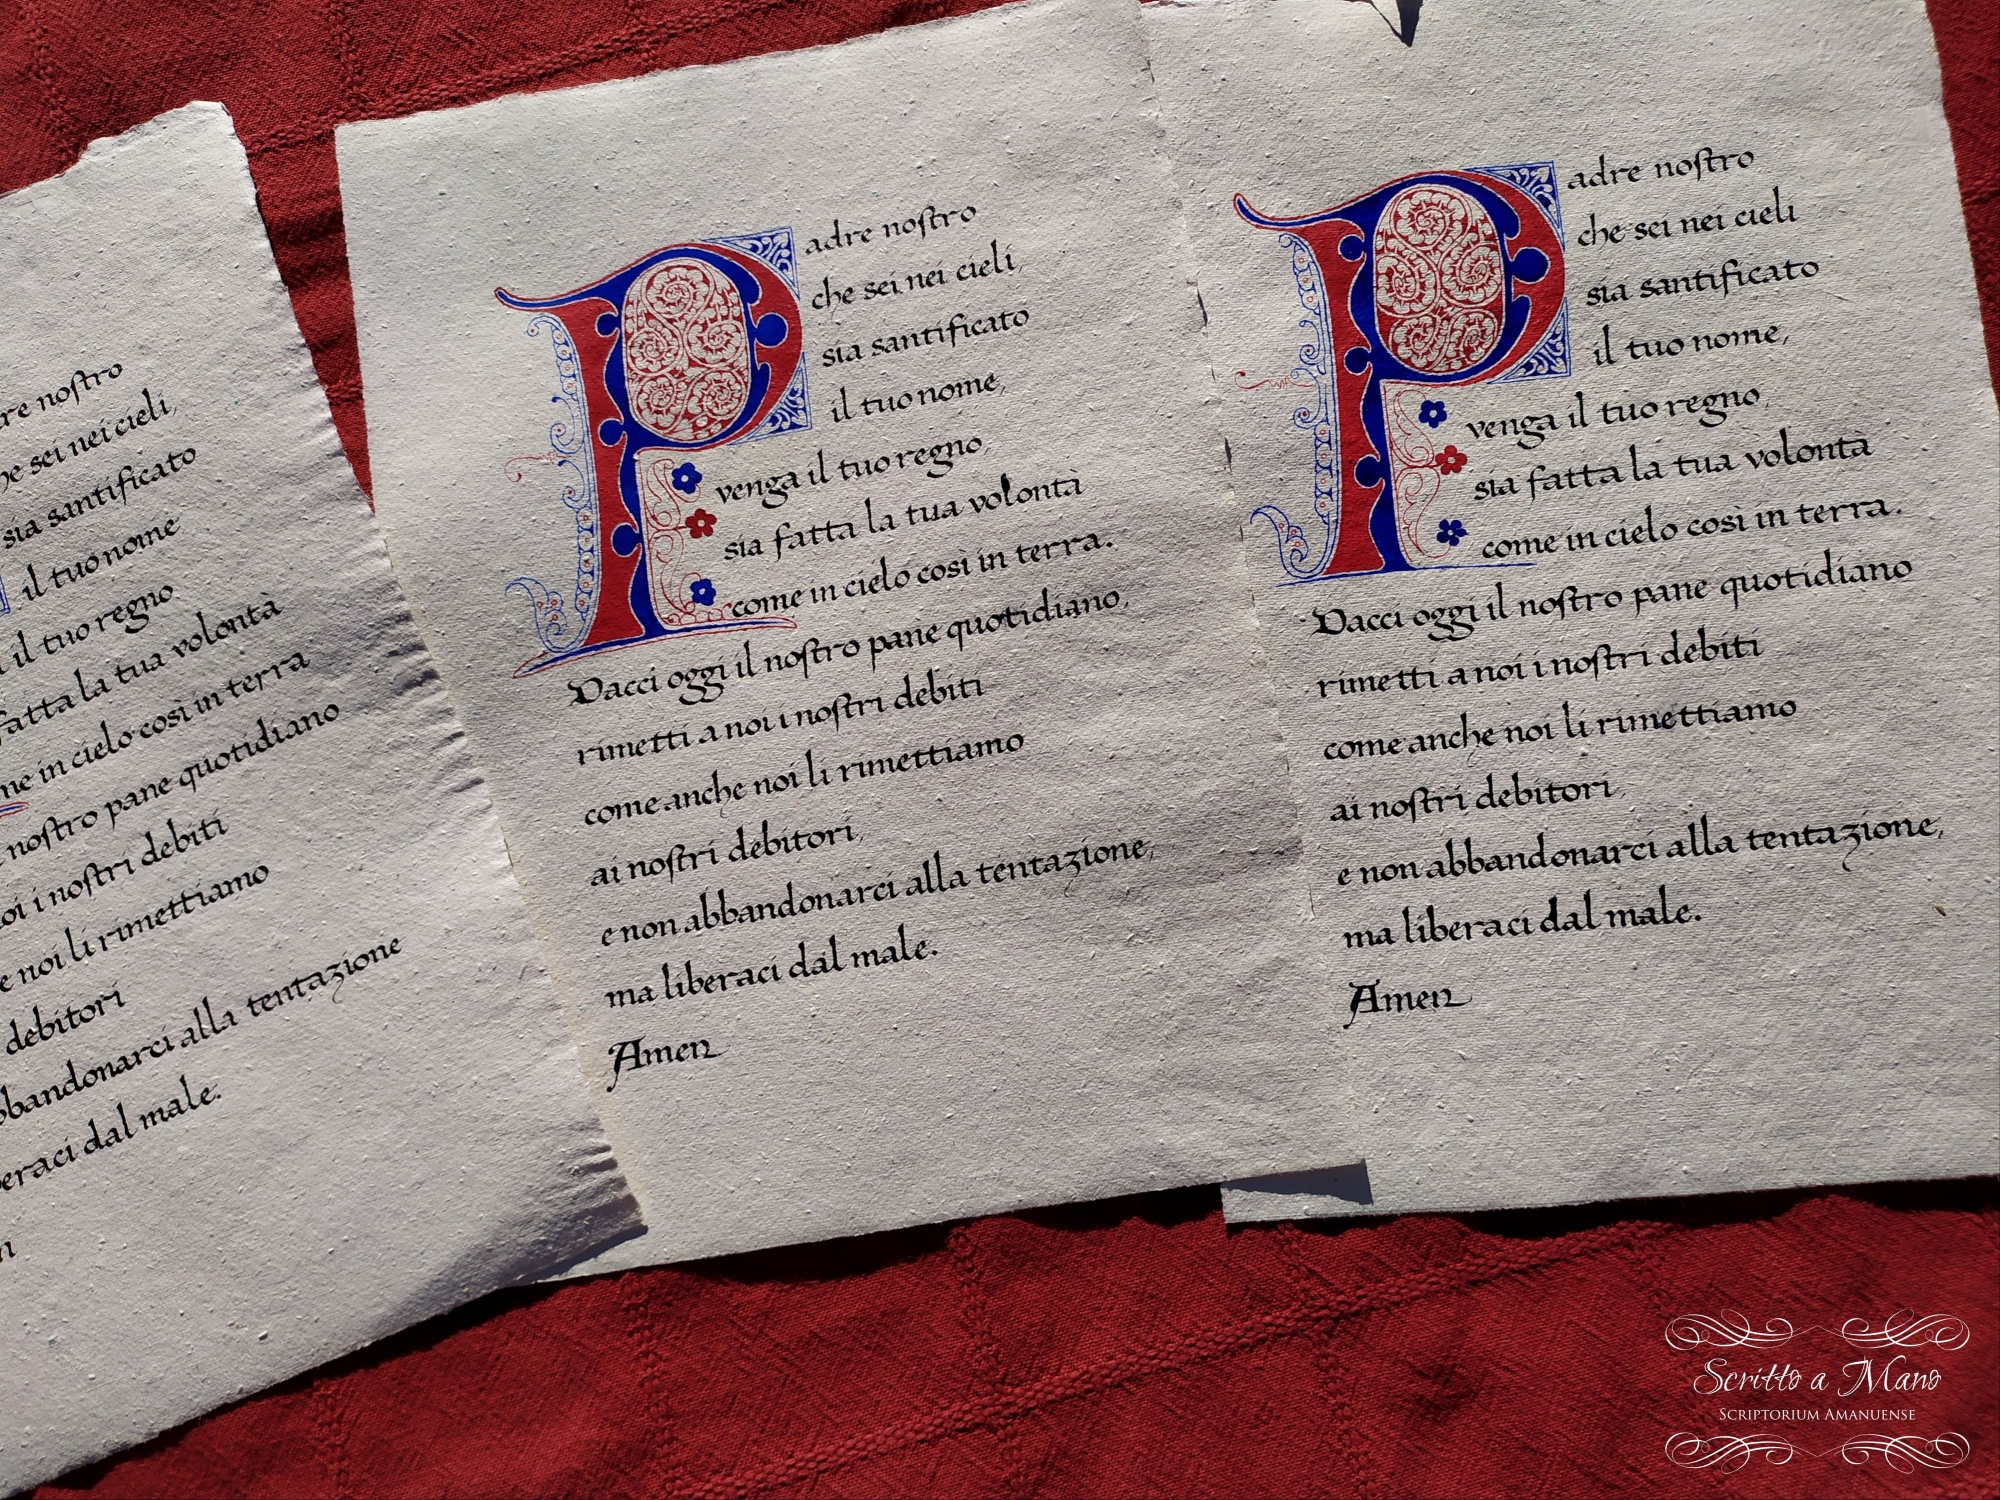 re nostro
he sei nei cieli,
sia santificato
il tuo nome
il tuo regno
fatta la tua volontà
me in cielo così in terra
nostro pane quotidiano
oi i nostri debiti
e noi li rimettiamo
debitori
bbandonarci alla tentazione
beraci dal male.
n
Padre nostro
che sei nei cieli,
sia santificato
il tuo nome,
venga il tuo regno,
sia fatta la tua volontà
come in cielo così in terra.
Dacci oggi il nostro pane quotidiano,
rimetti a noi i nostri debiti
come anche noi li rimettiamo
ai nostri debitori,
e non abbandonarci alla tentazione,
ma liberaci dal male.
Amen
Padre nostro
che sei nei cieli
sia santificato
il tuo nome,
venga il tuo regno,
sia fatta la tua volontà
come in cielo così in terra.
Dacci oggi il nostro pane quotidiano
rimetti a noi i nostri debiti
come anche noi li rimettiamo
ai nostri debitori,
e non abbandonarci alla tentazione,
ma liberaci dal male.
Amen
Scritto a Mano
Scriptorium Amanuense